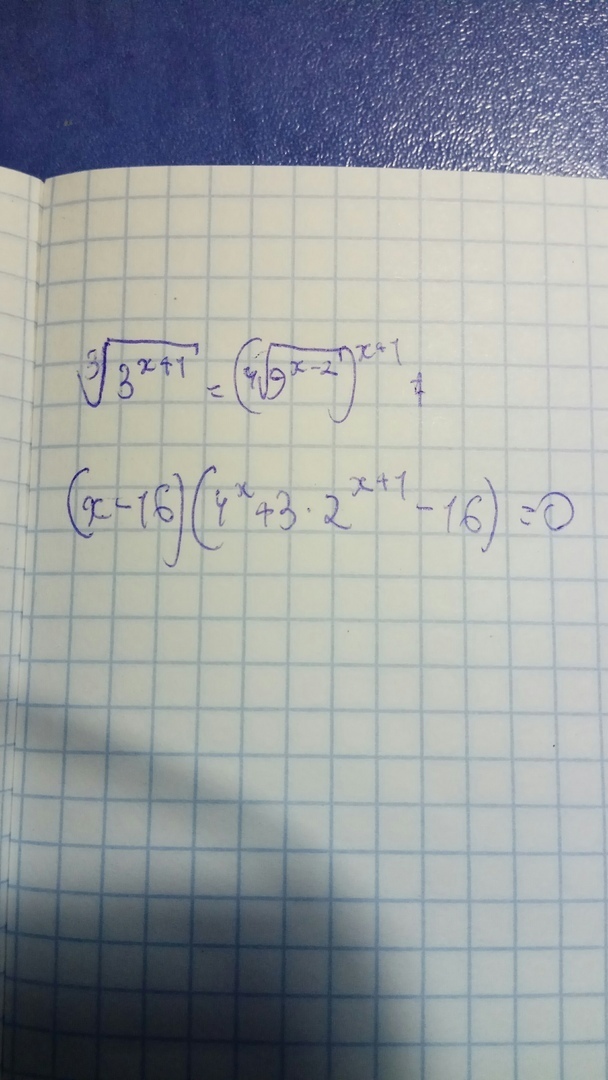 ∛(3^(x+1)) = (∜(9^(x-2)))^(x+1)
(x-16)(4^x+3·2^(x+1)-16)=0